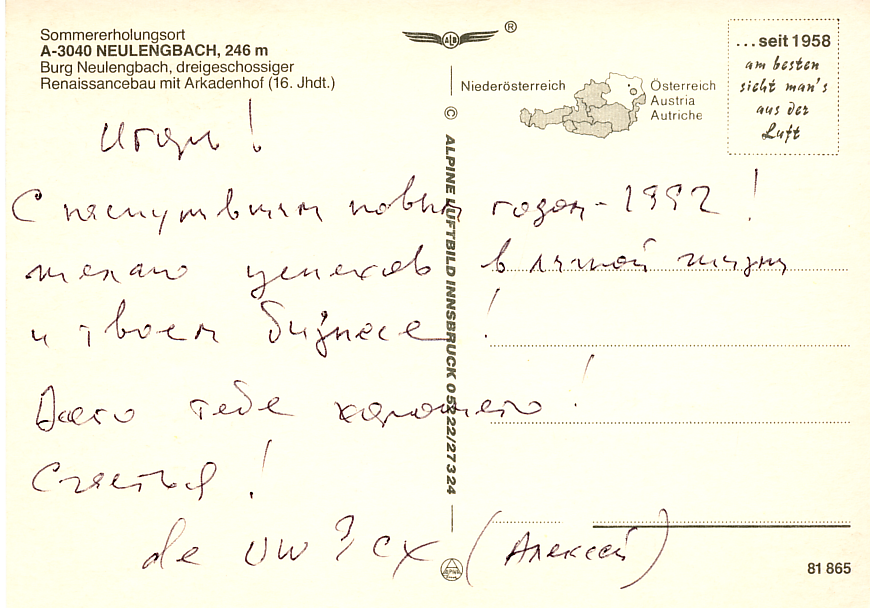 Sommererholungsort
A-3040 NEULENGBACH, 246 m
Burg Neulengbach, dreigeschossiger
Renaissancebau mit Arkadenhof (16. Jhdt.)
ALB ®
Niederösterreich
Österreich
Austria
Autriche
...seit 1958
am besten
sieht man's
aus der
Luft
© ALPINE LUFTBILD INNSBRUCK 05222/27324
Игорь!
С наступившим новым годом - 1992!
желаю успехов в личной жизни
и твоем бизнесе!
Всего тебе хорошего!
Счастья!
de UW3CX (Алексей)
81 865